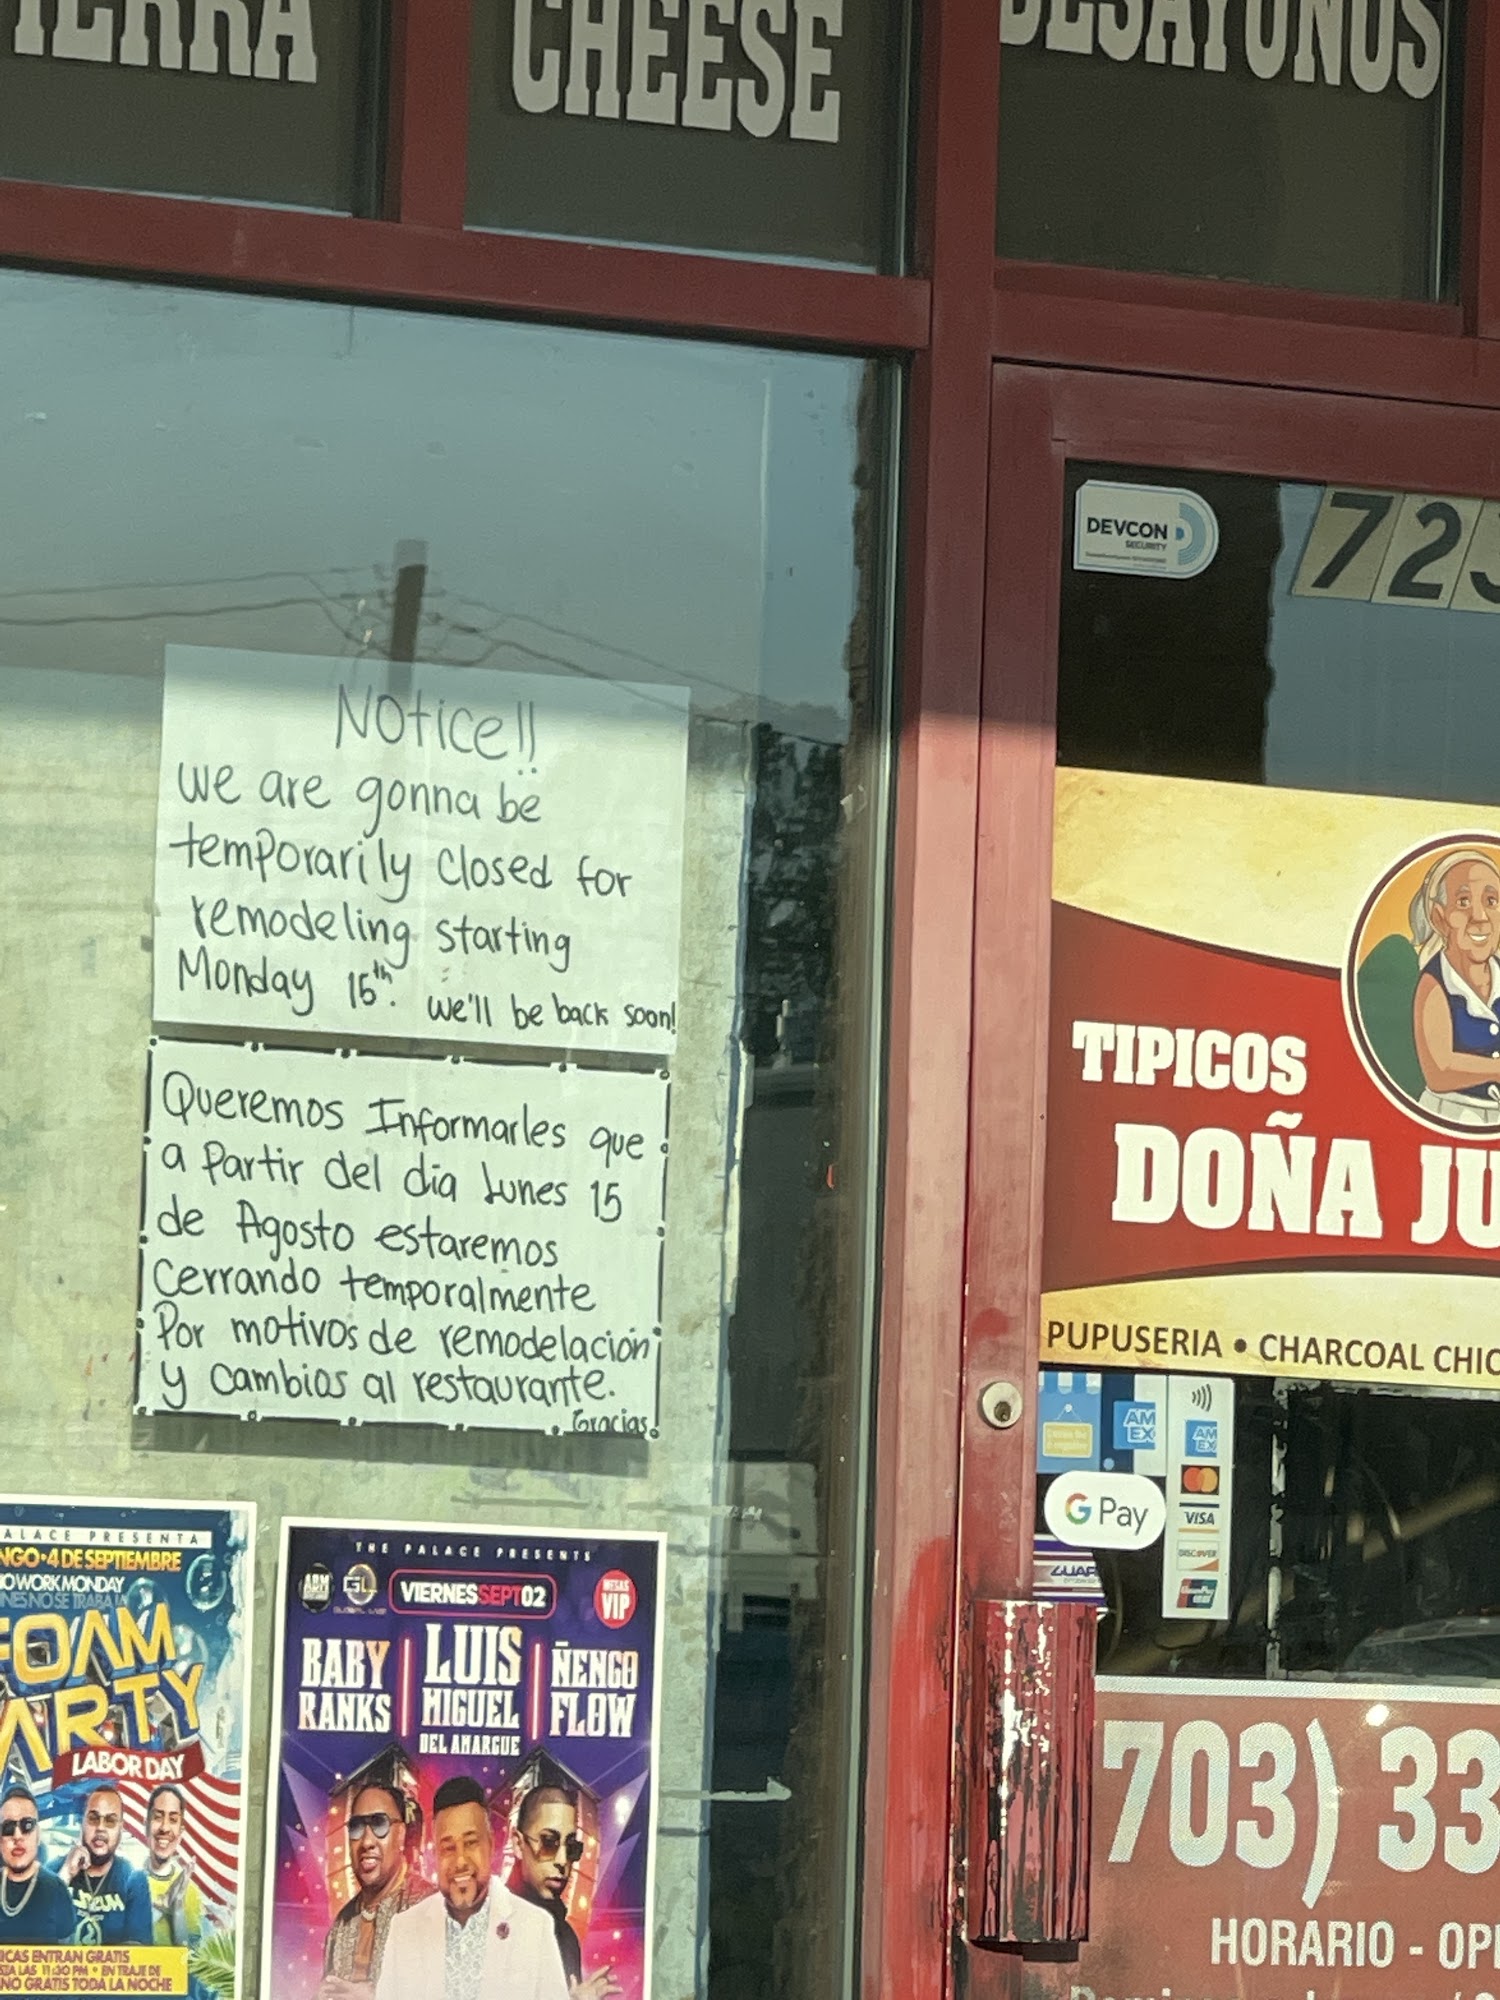 CHEESE
DESAYUNOS
DEVCON
SECURITY
72
Notice!!
we are gonna be
temporarily closed for
remodeling starting
Monday 15th. we'll be back soon!
Queremos Informarles que
a Partir del día Lunes 15
de Agosto estaremos
Cerrando temporalmente
Por motivos de remodelación
y cambios al restaurante.
Gracias!
TIPICOS
DOÑA JU
PUPUSERIA • CHARCOAL CHIC
AM
EX
AM
EX
G Pay
VISA
DISCOVER
703) 33
HORARIO - OP
ALACE PRESENTA
NGO • 4 DE SEPTIEMBRE
NO WORK MONDAY
NES NO SE TRABAJA
FOAM
PARTY
LABOR DAY
ICAS ENTRAN GRATIS
STA LAS 11:30 PM • EN TRAJE DE
ÑO GRATIS TODA LA NOCHE
THE PALACE PRESENTS
VIERNES SEPT 02
MESAS
VIP
BABY
RANKS
LUIS
MIGUEL
DEL AMARGUE
ÑENGO
FLOW